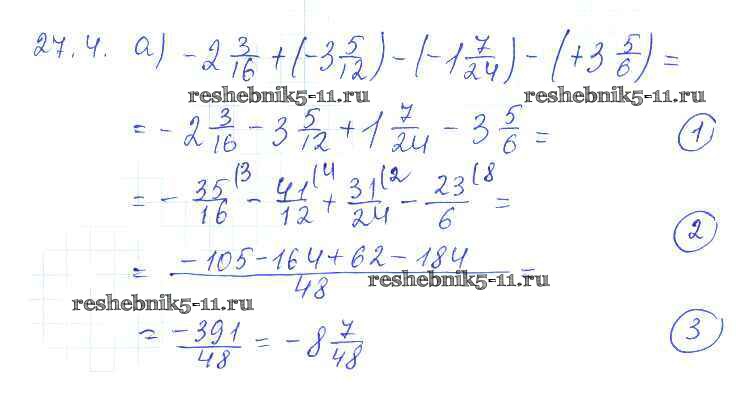 27.4. а) -2 3/16 + (-3 5/12) - (-1 7/24) - (+3 5/6) =
reshebnik5-11.ru reshebnik5-11.ru
= -2 3/16 - 3 5/12 + 1 7/24 - 3 5/6 = 1
= - 35/16 (3 - 41/12 (4 + 31/24 (2 - 23/6 (8 =
2
= -105-164+62-184/48 =
reshebnik5-11.ru
reshebnik5-11.ru
= -391/48 = -8 7/48 3